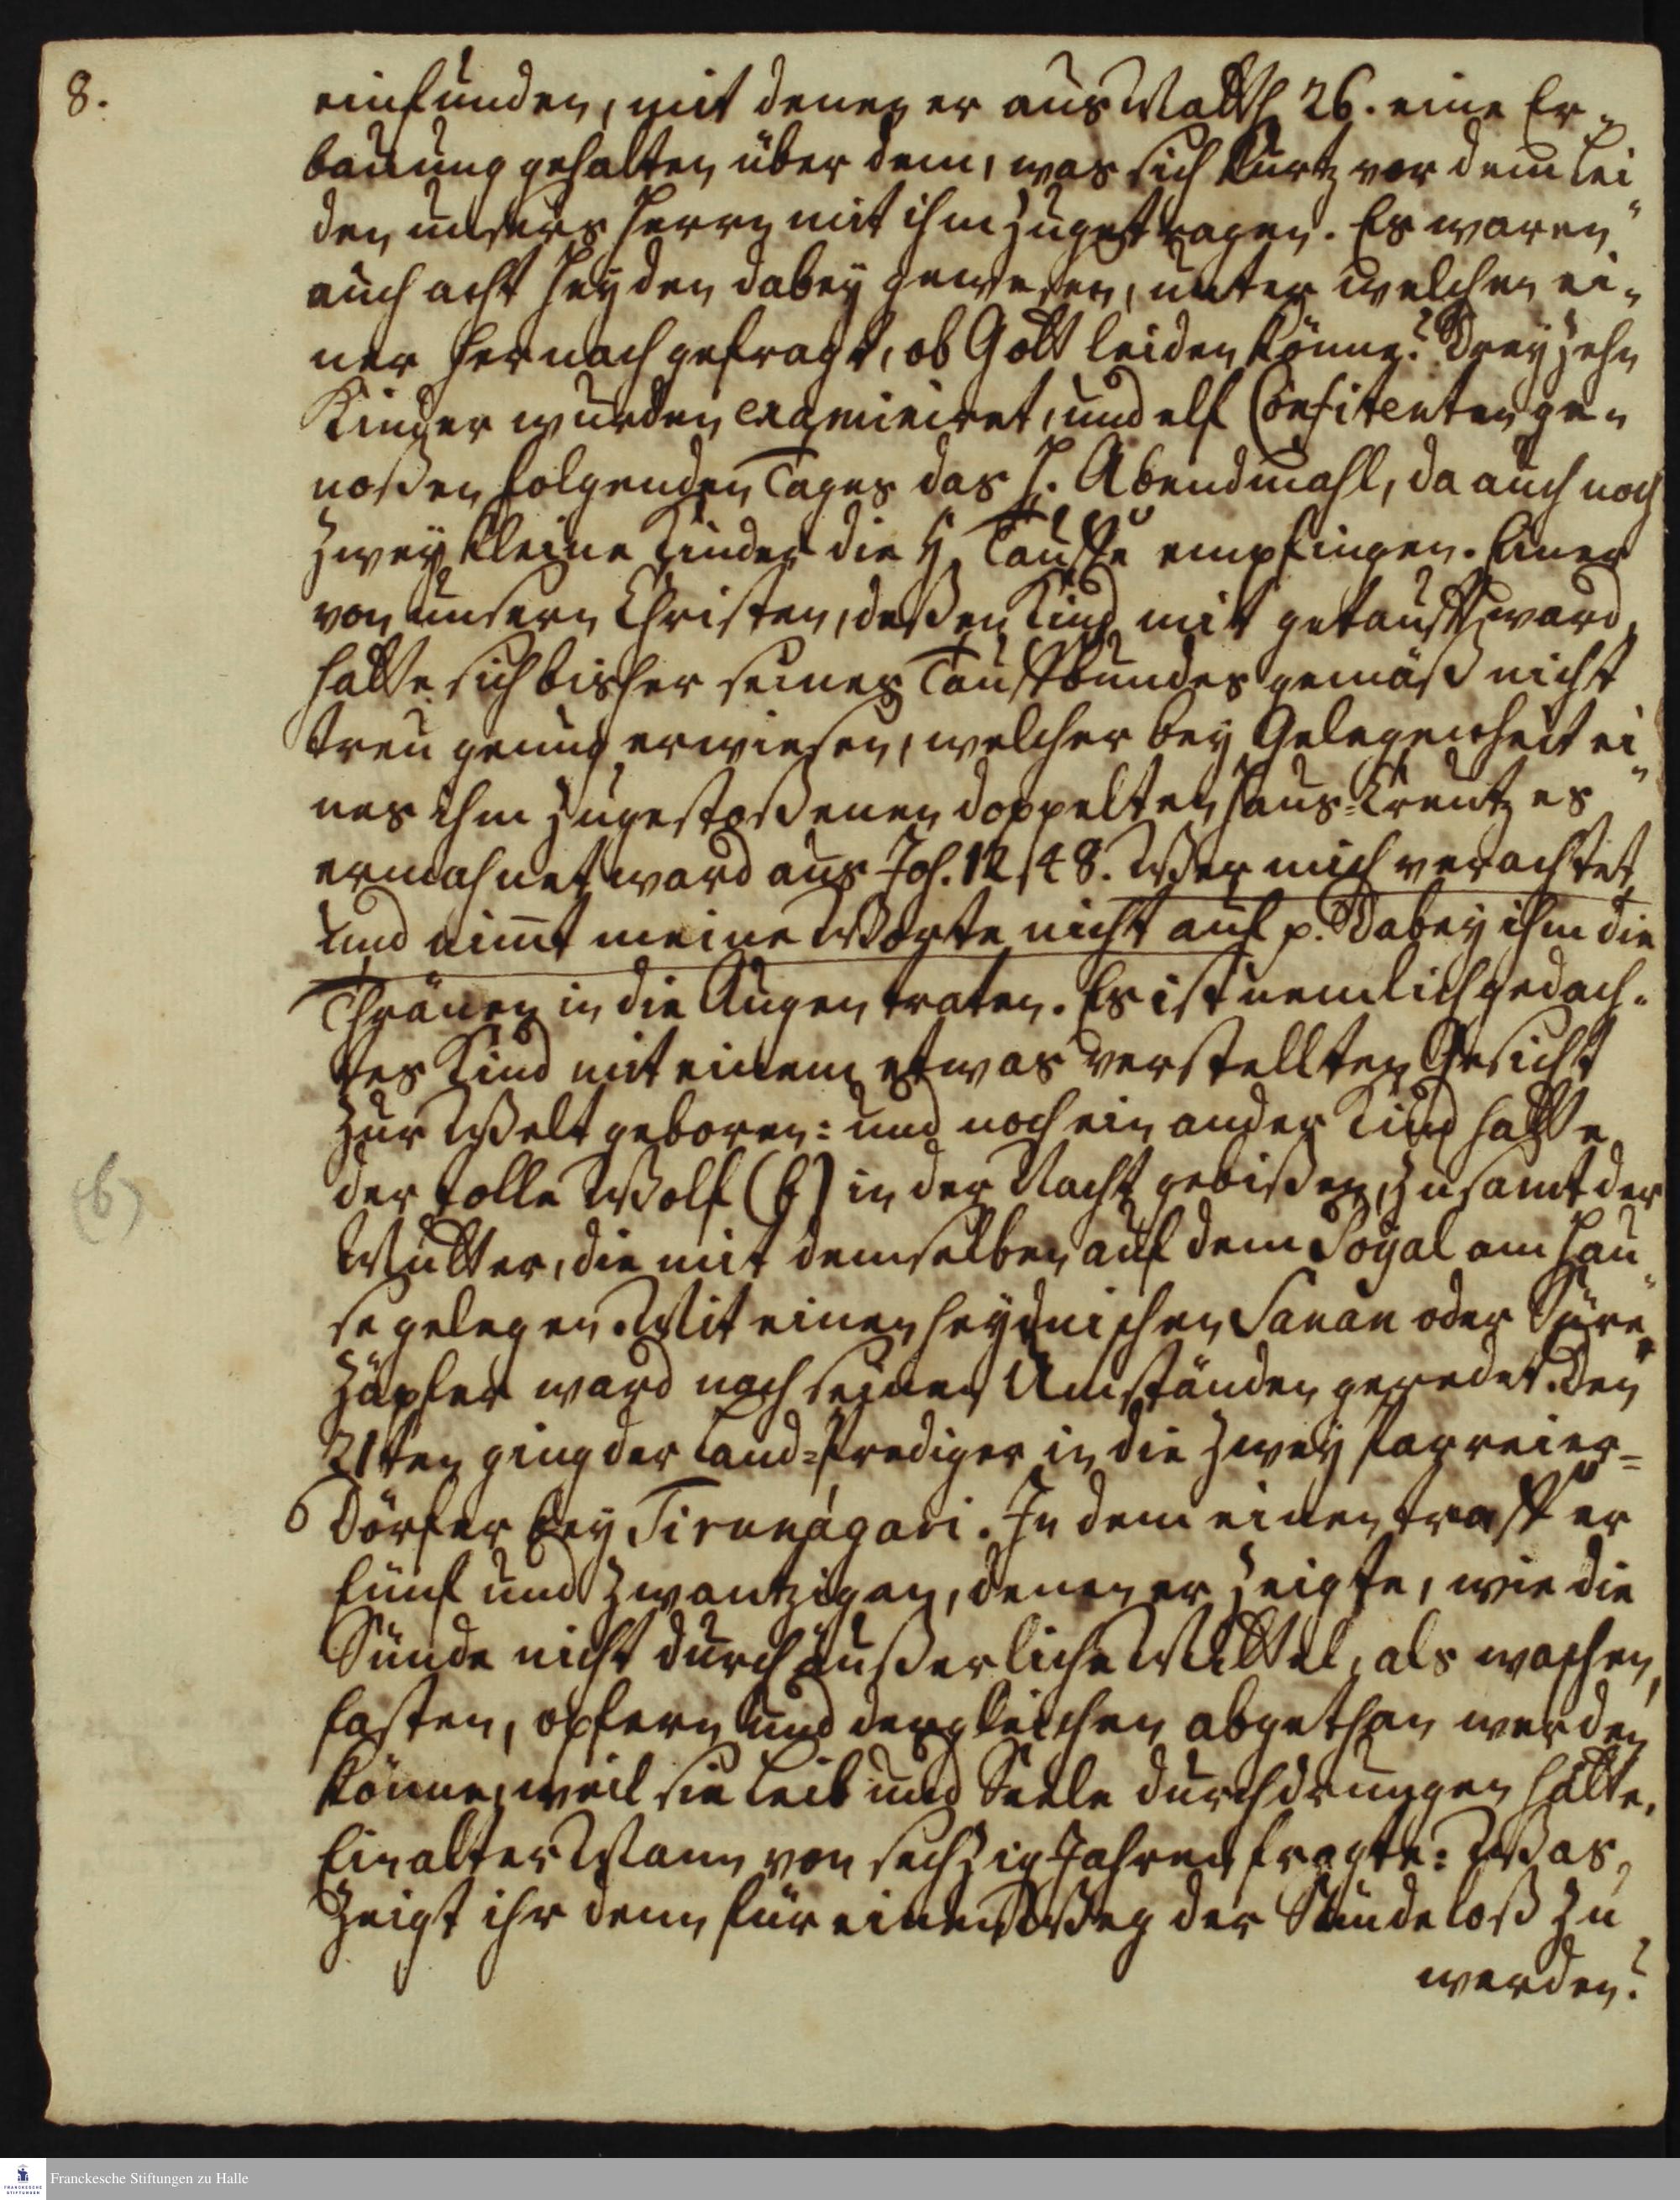 8.
einfunden, mit denen er aus Matth 26. eine Er-
bauung gehalten über dem, was sich kurtz vor dem Lei-
den unsers Herrn mit ihm zugetragen. Es waren
auch acht Heyden dabey gewesen, unter welchen ei-
ner hernach gefragt, ob Gott leiden könne? Dreyzehn
Kinder wurden examiniret, und elf Confitenten ge-
noßen folgenden Tages das H. Abendmahl, da auch noch
zwey kleine Kinder die H. Tauffe empfingen. Einer
von unsern Christen, deßen Kind mit getaufft ward,
hatte sich bisher seines Tauffbundes gemäß nicht
treu genug erwiesen, welcher bey Gelegenheit ei-
nes ihm zugestoßenen doppelten Haus-Creutzes
ermahnet ward aus Joh. 12, 48. Wer mich verachtet
und nimt meine Worte nicht auf p. Dabey ihm die
Thränen in die Augen traten. Es ist nemlich gedach-
tes Kind mit einem etwas verstellten Gesicht
zur Welt geboren: und noch ein ander Kind hatte
der tolle Wolf (b) in der Nacht gebißen, zusamt der
(b)
Mutter, die mit demselben auf dem Poyal am Hau-
se gelegen. Mit einen heydnischen Sanan oder Süre-
Zäpfer ward nach seinen Umständen geredet. Den
21ten ging der Land-Prediger in die zwey Parreier-
Dörfer bey Tirunágari. In dem einen traff er
fünf und zwantzigen, denen er zeigte, wie die
Sünde nicht durch äußerliche Mittel, als waschen,
fasten, opfern und dergleichen abgethan werden
könne, weil sie Leib und Seele durchdrungen hätte.
Ein alter Mann von sechzig Jahren fragte: Was
zeigt ihr denn für einen Weg der Sünde loß zu
werden?
Franckesche Stiftungen zu Halle
FRANCKESCHE STIFTUNGEN